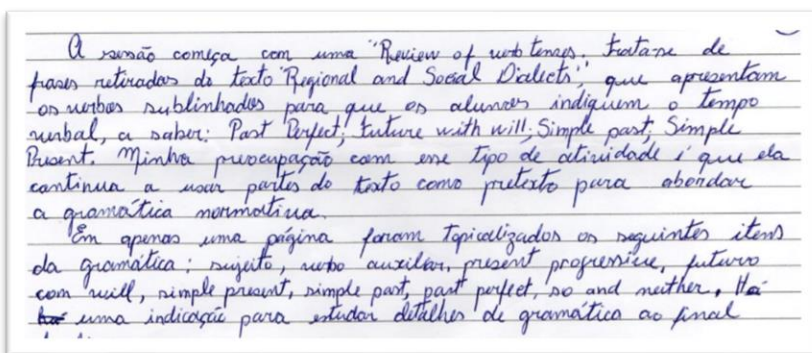 A sessão começa com uma "Review of verb tenses. Trata-se de
frases retiradas do texto "Regional and Social Dialects", que apresentam
os verbos sublinhados para que os alunos indiquem o tempo
verbal, a saber: Past Perfect; Future with will; Simple past; Simple
Present. Minha preocupação com esse tipo de atividade é que ela
continua a usar partes do texto como pretexto para abordar
a gramática normativa.
Em apenas uma página foram topicalizados os seguintes itens
da gramática: sujeito, verbo auxiliar, present progressive, futuro
com will, simple present, simple past, past perfect, so and neither. Há
uma indicação para estudar detalhes de gramática ao final